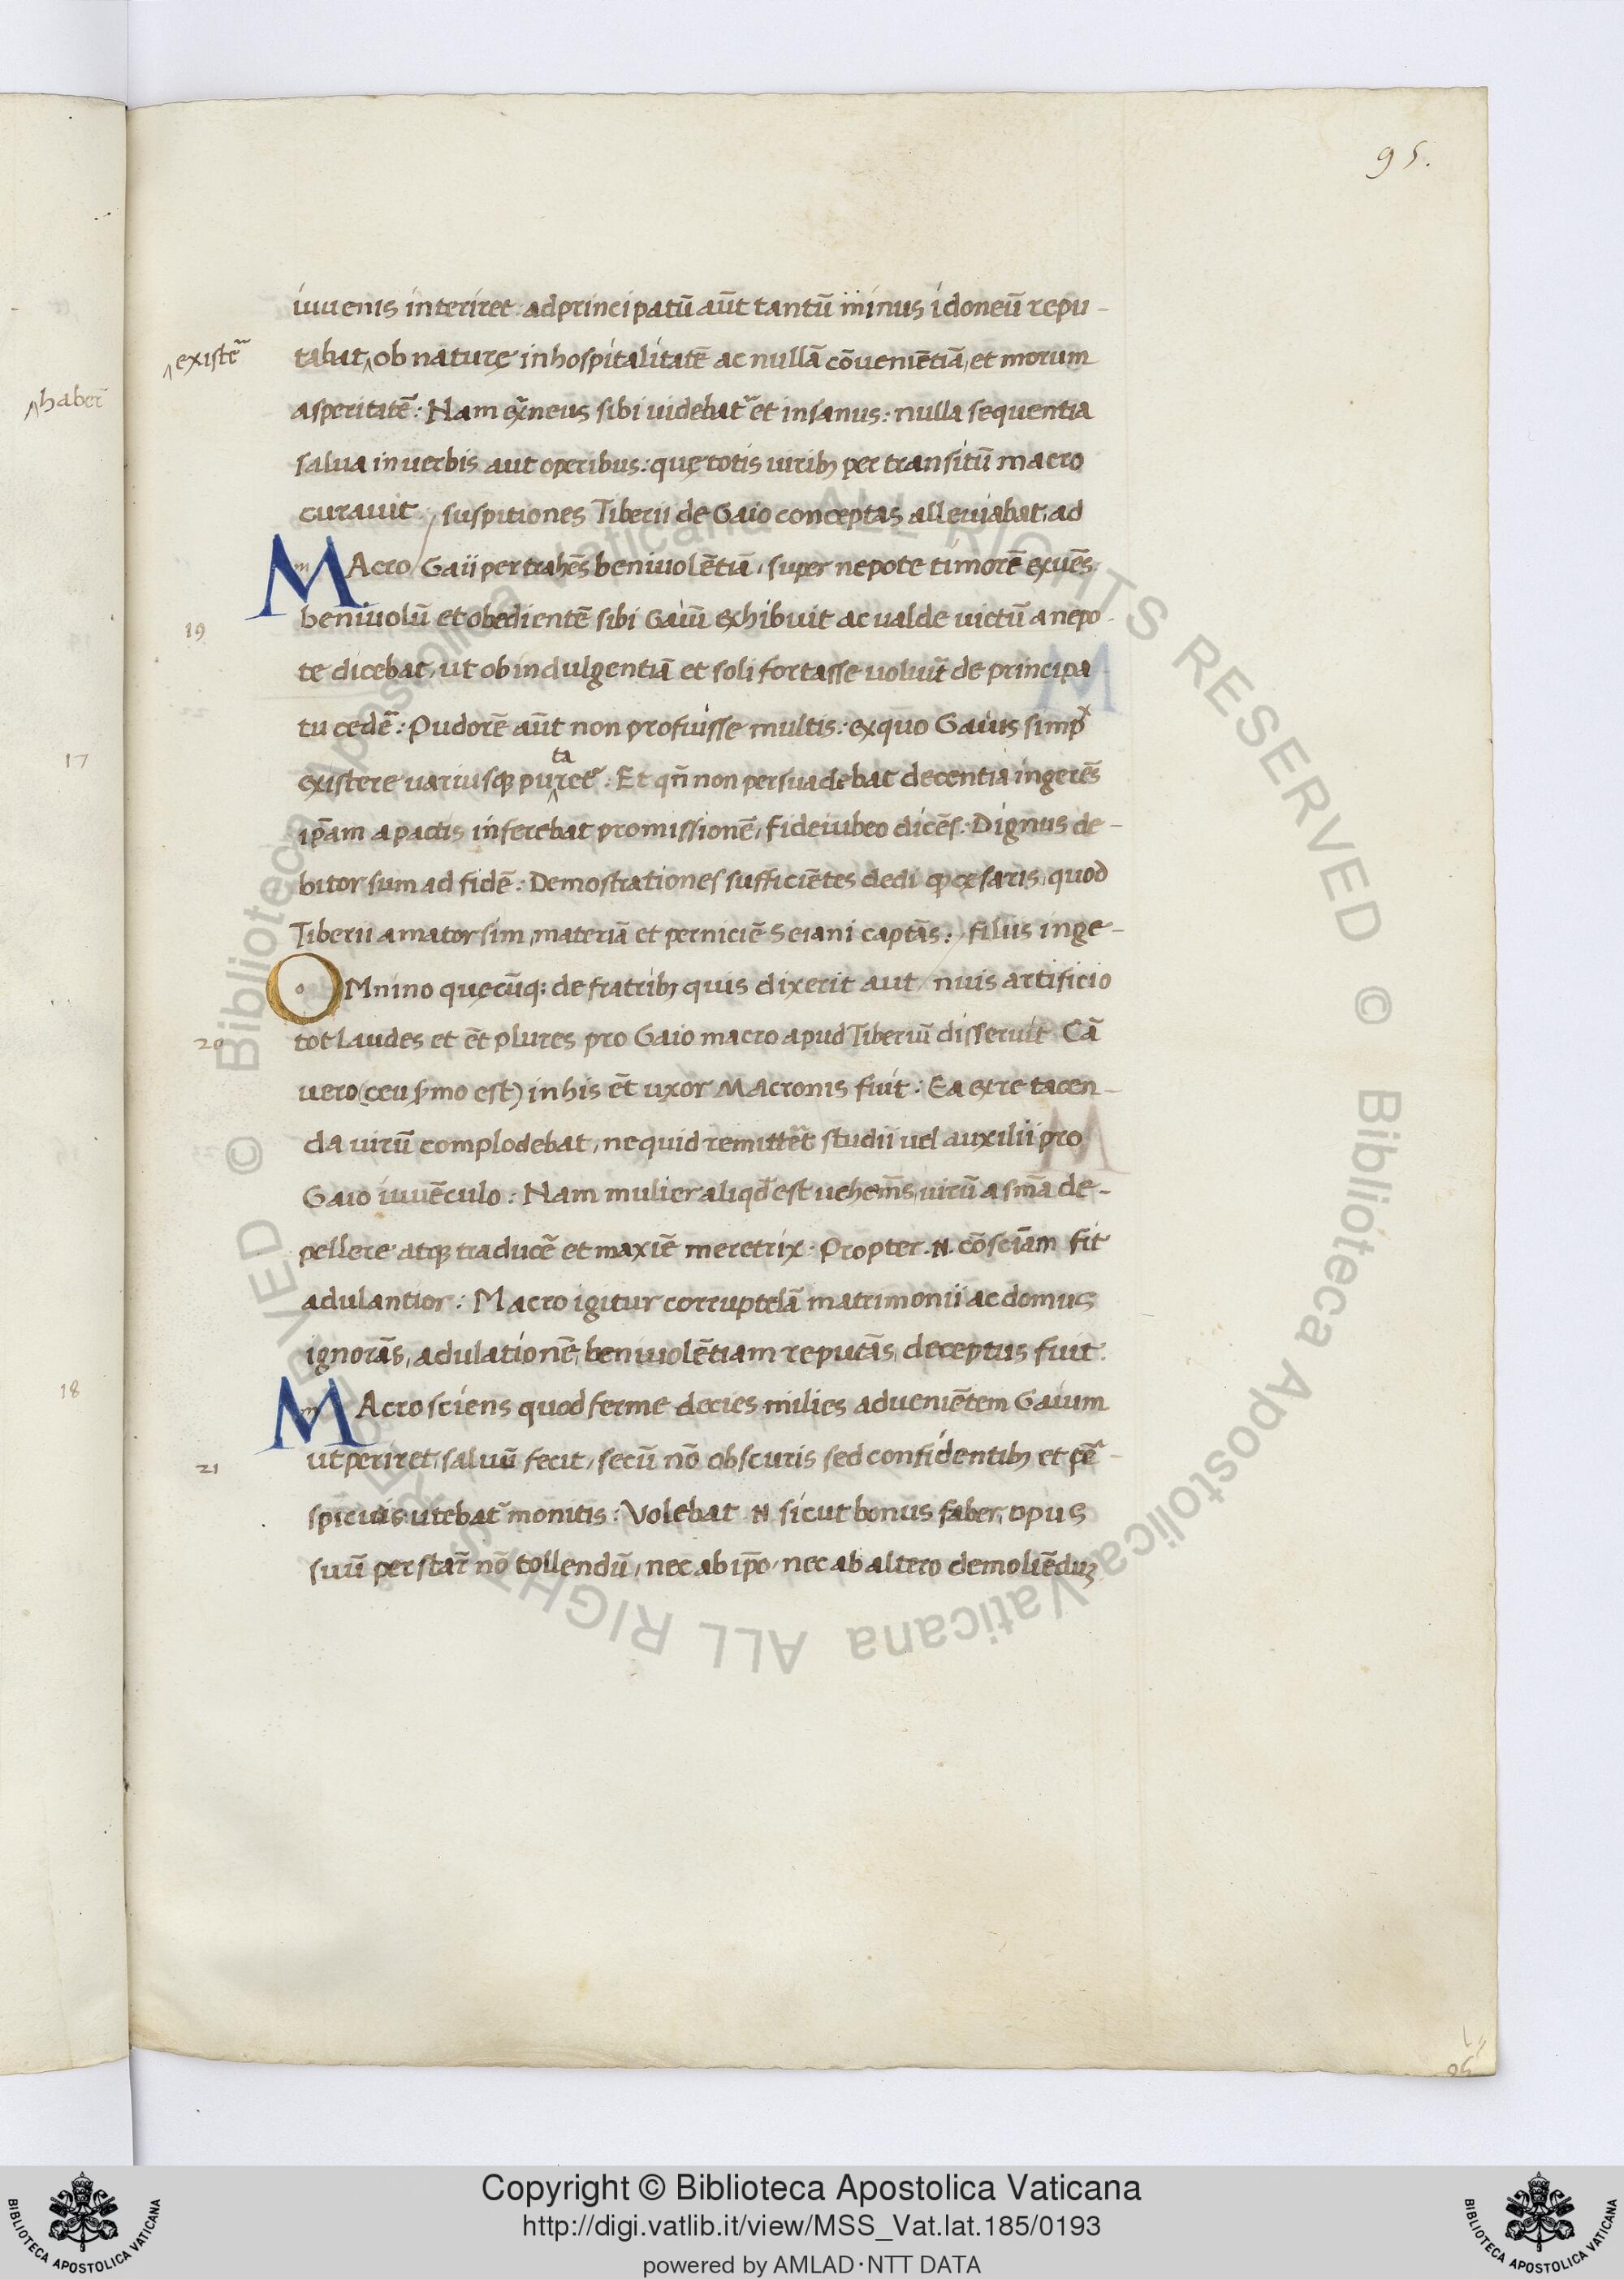 95.
iuuenis interiret: ad principatū aūt tantū minus idoneū repu-
^existēˉ
tabat^ob naturę inhospitalitatē ac nullā cōueniētiā, et morum
^haberˉ
asperitatē: Nam ex̄neus sibi uidebatˉ et insanus: nulla sequentia
salua in uerbis aut operibus: quę totis uirib; per transitū macro
curauit / suspitiones Tiberii de Gaio conceptas alleuiabat, ad
MAcro / Gaii pertrahēs beniuolētiā, super nepote timorē exuēs
19
beniuolū et obedientē sibi Gaiū exhibuit ac ualde uictū a nepo-
te dicebat, ut ob indulgentiā et soli fortasse uoluit de principa
tu cedē: Pudorē aūt non profuisse multis: ex quo Gaius simpˣ
17
ta
existere uariusq; pu^retˉ: Et qn̄ non persuadebat decentia ingerēs
ip̄am a pactis inferebat promissionē, fideiubeo dicēs: Dignus de-
bitor sum ad fidē: Demostrationes sufficiētes dedi cęsaris, quod
Tiberii amator sim, materiā et perniciē Seiani captās: / filius inge-
OMnino quęcūq: de fratrib; quis dixerit aut / nuis artificio
20
tot laudes et ēt plures pro Gaio macro apud Tiberiū disseruit Cā
uero (ceu ẜmo est) in his ēt uxor MAcronis fuit: Ea ex re tacen-
da uirū complodebat, ne quid remittēt studii uel auxilii pro
Gaio iuuēculo: Nam mulier aliqd̄ est uehem̄s, uirū a sm̄a de-
pellere atq; traducē et maxīe meretrix: Propter .N. cōsciām fit
adulantior: Macro igitur corruptelā matrimonii ac domus
ignorās, adulationē, beniuolētiam reputās, deceptus fuit:
18
MAcro sciens quod ferme decies milies adueniētem Gaium
ut periret, saluū fecit, secū nō obscuris sed confidentib; et ꝑ-
21
spicuis utebatˉ monitis: Volebat .N. sicut bonus faber, opus
suū perstarˉ nō tollendū, nec ab ip̄o, nec ab altero demoliēduʒ
Copyright © Biblioteca Apostolica Vaticana
http://digi.vatlib.it/view/MSS_Vat.lat.185/0193
powered by AMLAD·NTT DATA
BIBLIOTECA APOSTOLICA VATICANA
BIBLIOTECA APOSTOLICA VATICANA
© Biblioteca Apostolica Vaticana ALL RIGHTS RESERVED © Biblioteca Apostolica Vaticana ALL RIGHTS RESERVED